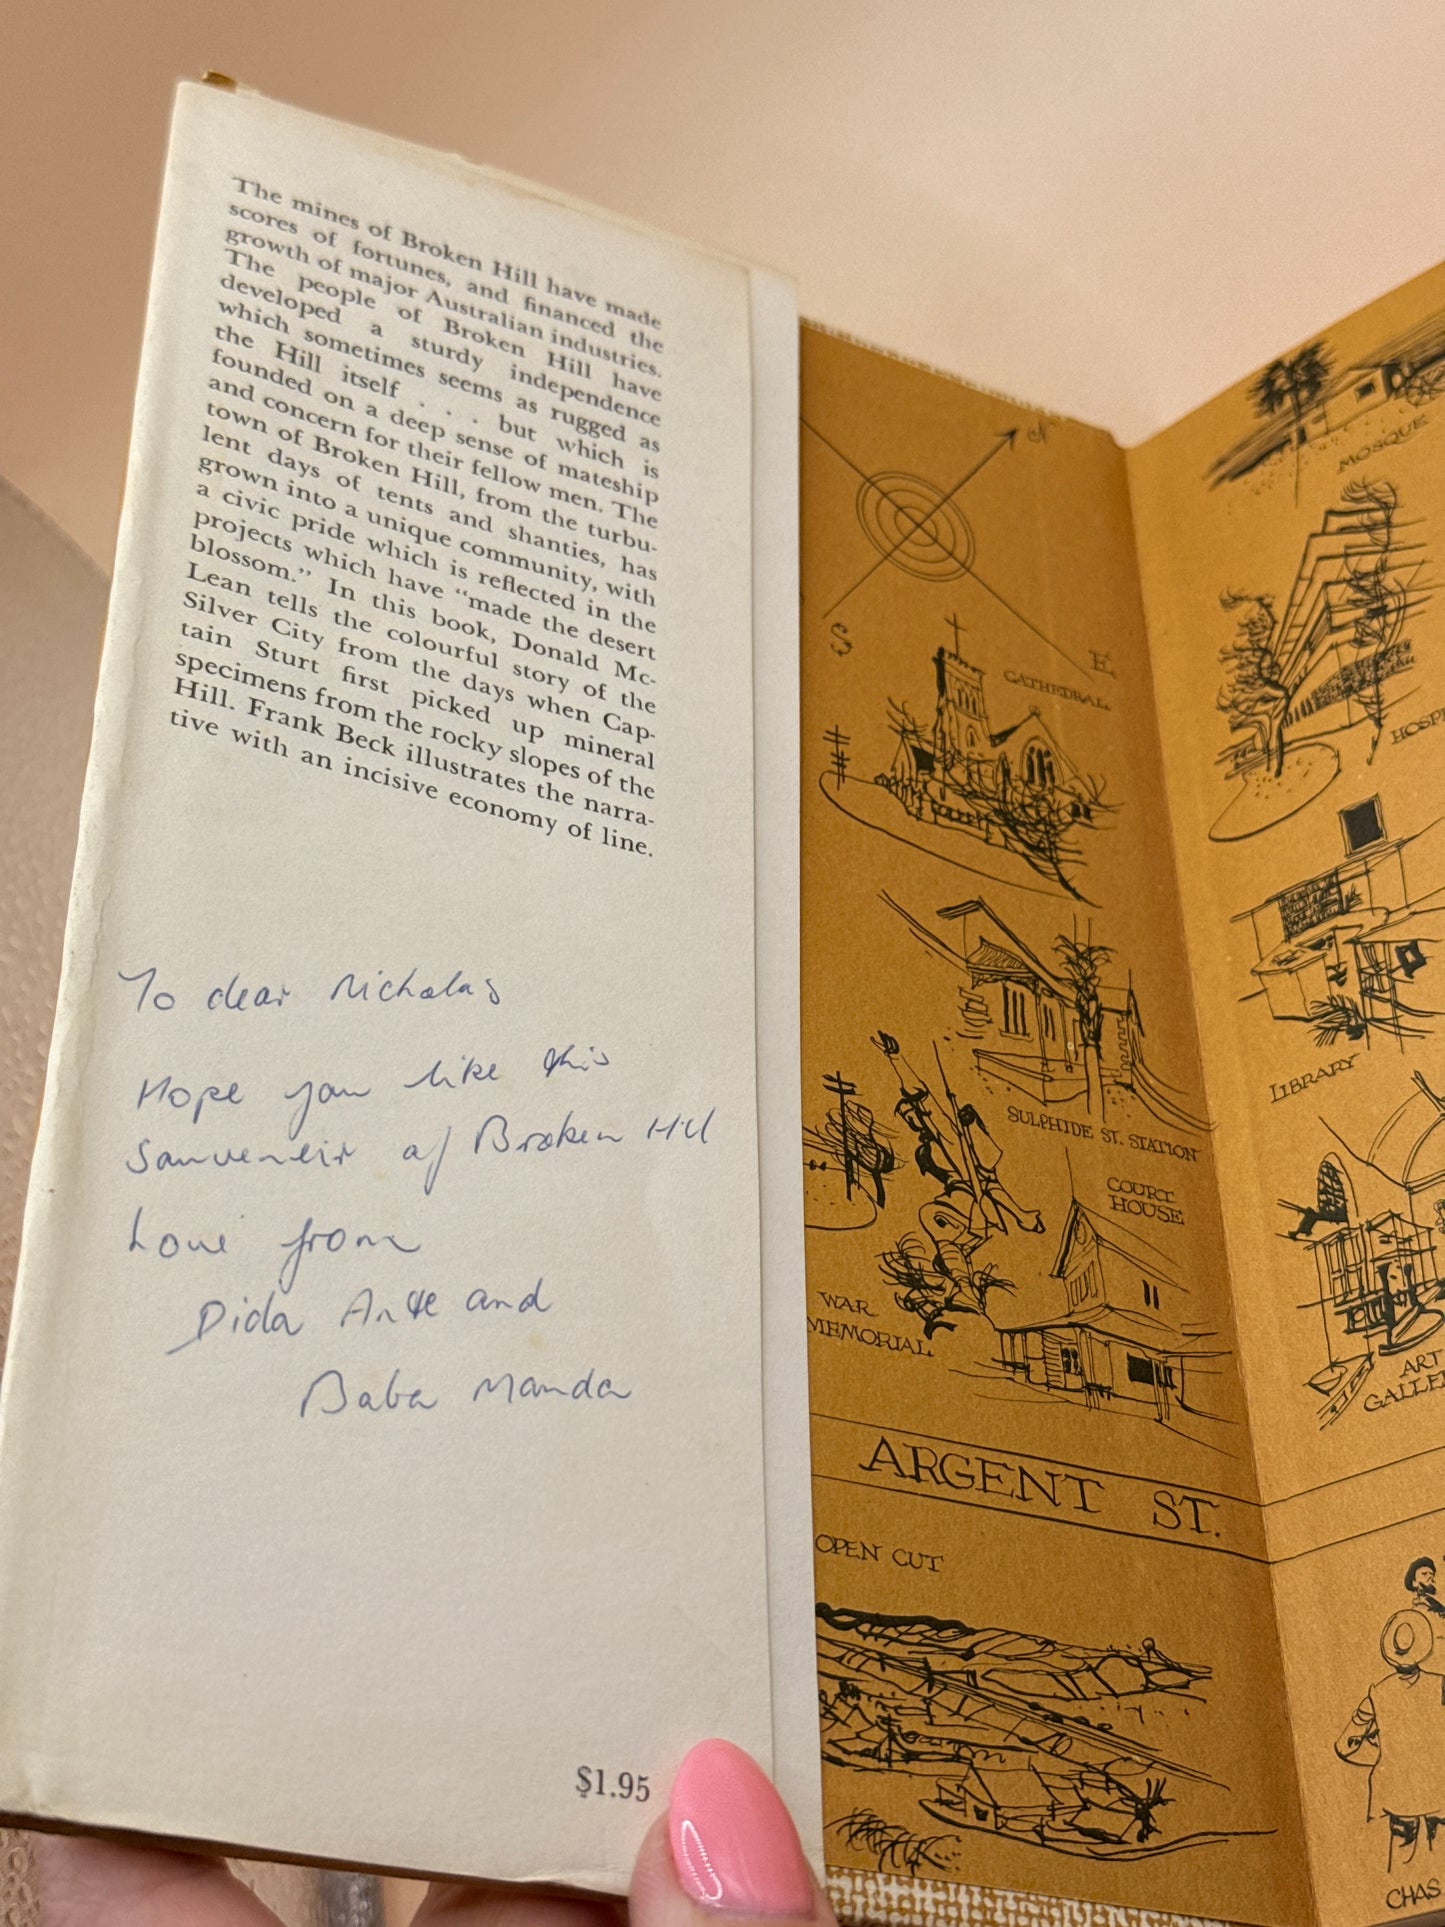 The mines of Broken Hill have made
scores of fortunes, and financed the
growth of major Australian industries.
The people of Broken Hill have
developed a sturdy independence
which sometimes seems as rugged as
the Hill itself . . . but which is
founded on a deep sense of mateship
and concern for their fellow men. The
town of Broken Hill, from the turbu-
lent days of tents and shanties, has
grown into a unique community, with
a civic pride which is reflected in the
projects which have “made the desert
blossom.” In this book, Donald Mc-
Lean tells the colourful story of the
Silver City from the days when Cap-
tain Sturt first picked up mineral
specimens from the rocky slopes of the
Hill. Frank Beck illustrates the narra-
tive with an incisive economy of line.
To dear Nicholas
Hope you like this
Souveneir of Broken Hill
Love from
Dida Ante and
Baba Manda
$1.95
N
S
E
CATHEDRAL
SULPHIDE ST. STATION
COURT
HOUSE
WAR
MEMORIAL
ARGENT ST.
OPEN CUT
MOSQUE
HOSPI
LIBRARY
ART
GALLE
CHAS